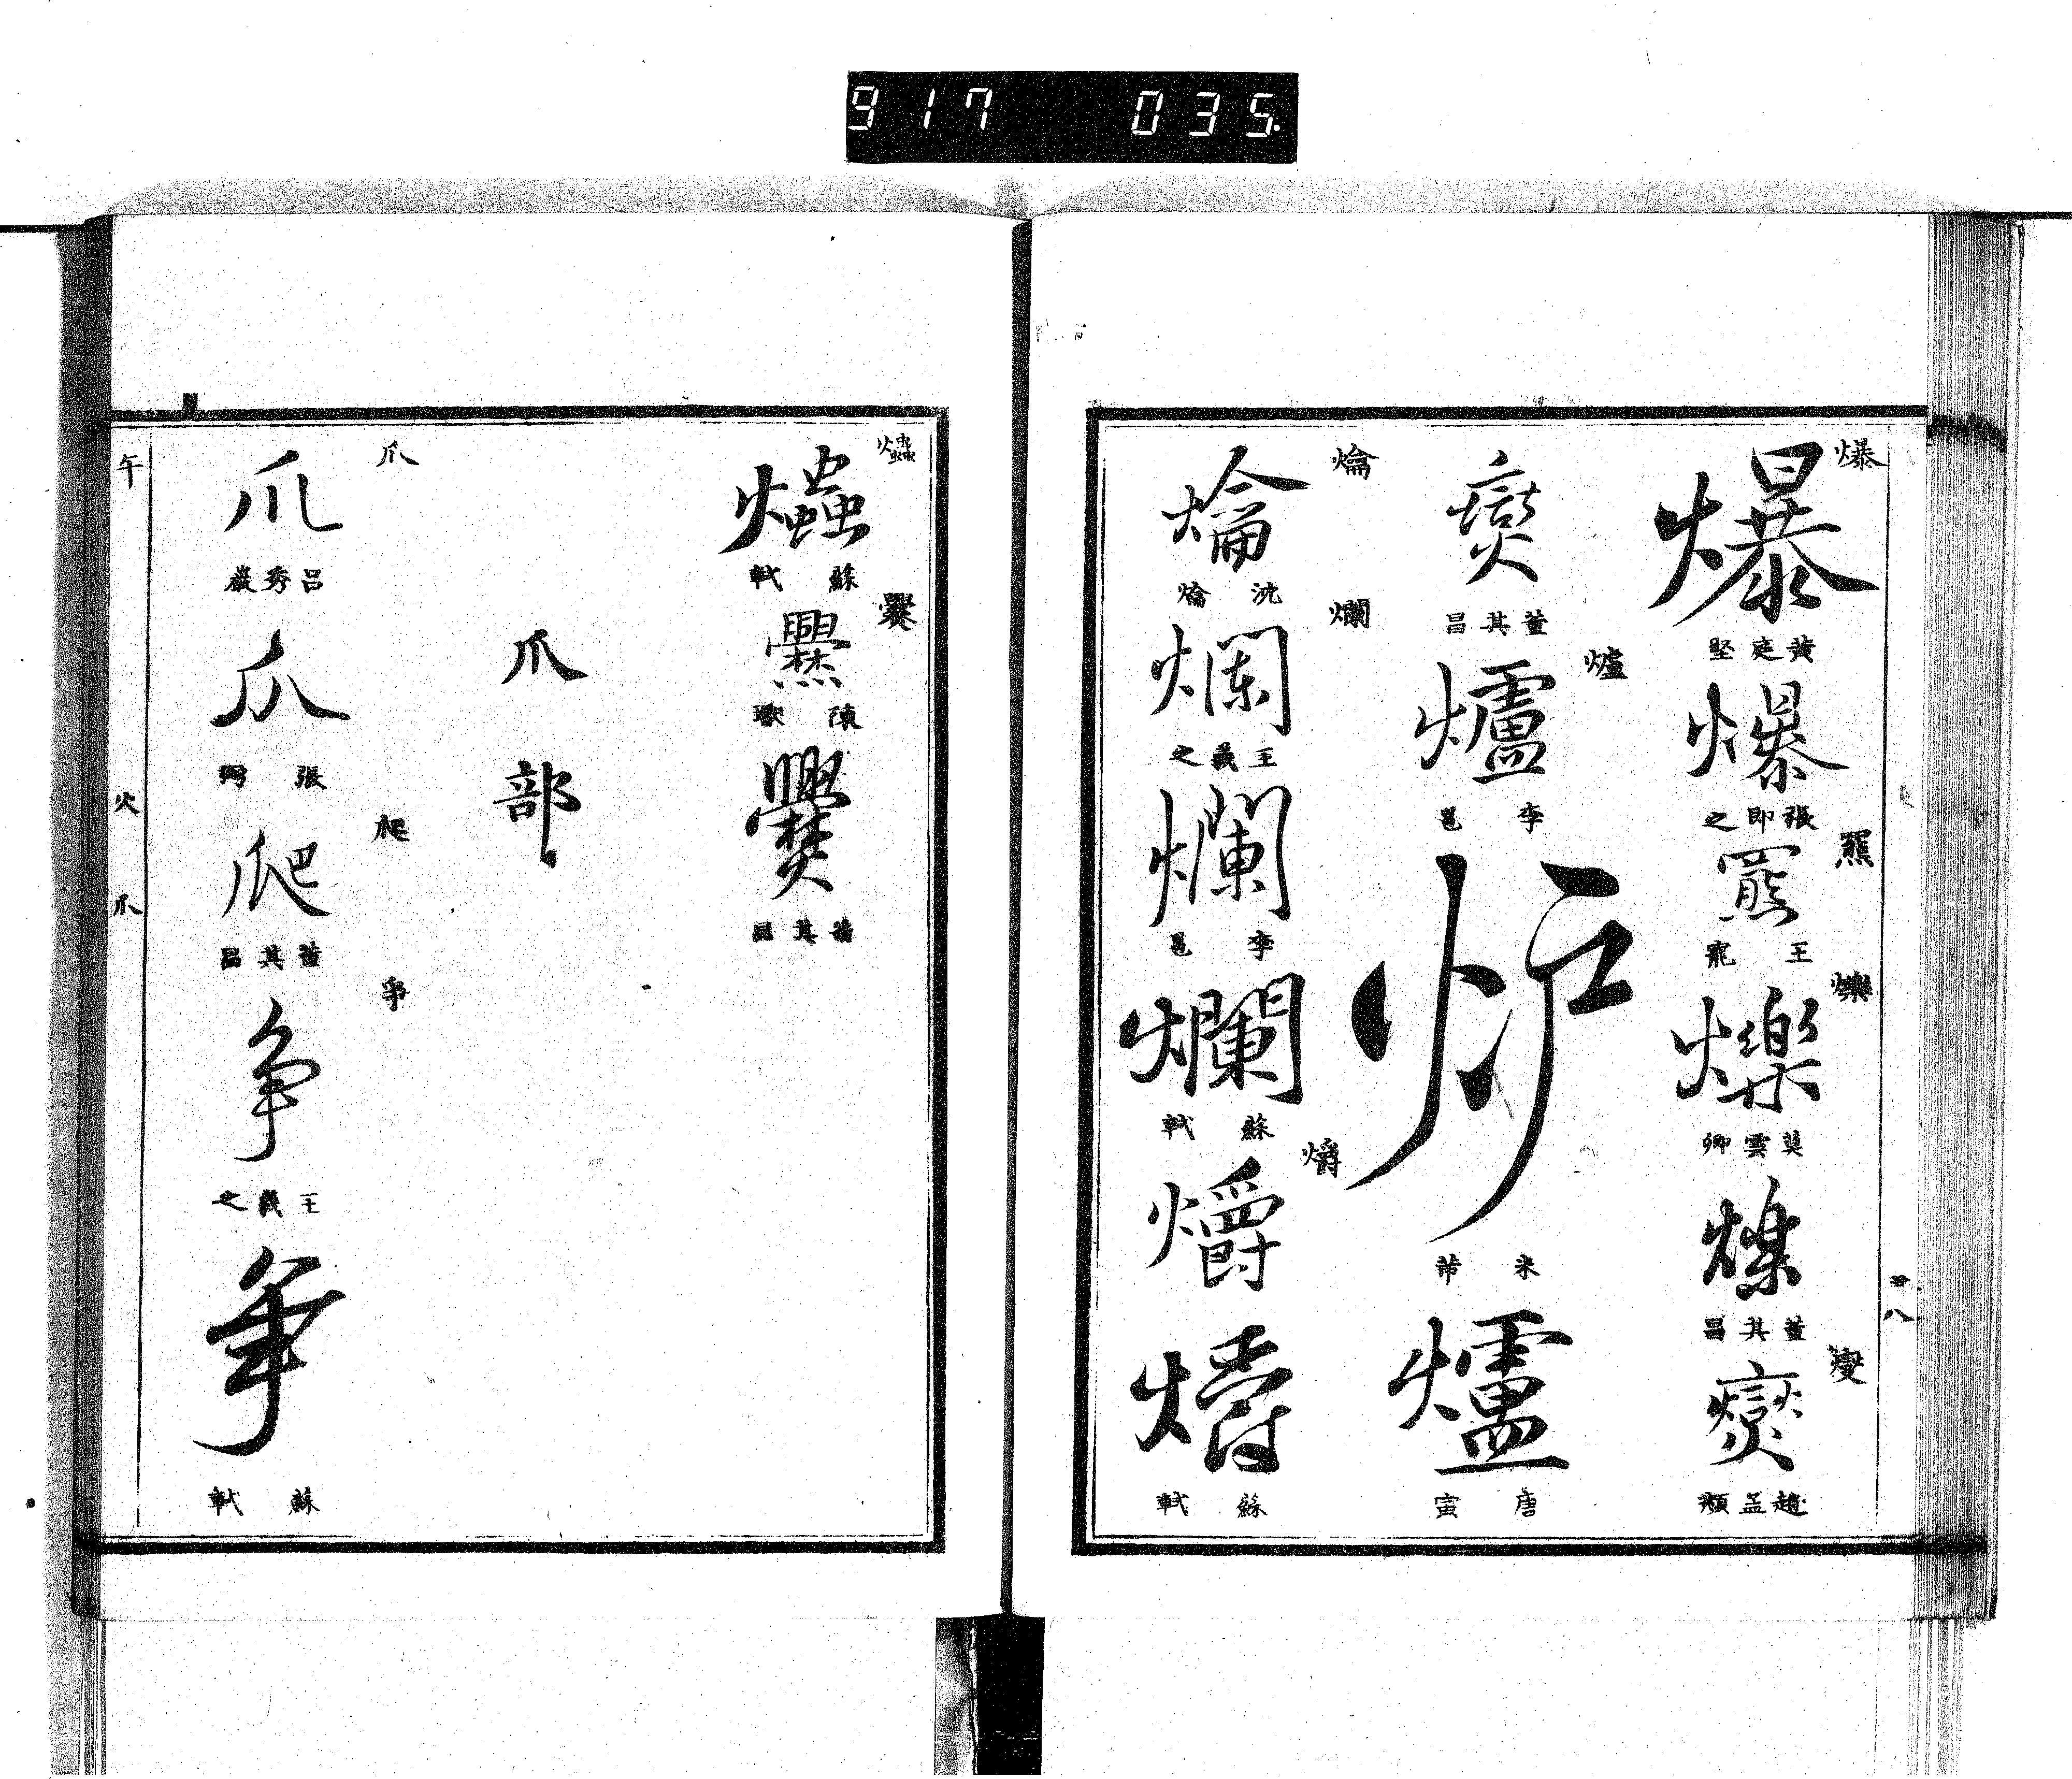 917 035
爆
爆
黃庭堅
爆
張即之
羆
羆
王寵
爍
爍
莫雲卿
爍
董其昌
燮
燮
趙孟頫
廿八
燮
董其昌
爐
爐
李邕
炉
米芾
爐
唐寅
爚
爚
沈爚
爛
爛
王羲之
爛
李邕
爛
蘇軾
爝
爝
爝
蘇軾
蘇軾
爨
爨
陳
爨
董其昌
爪部
爪
爪
呂秀巖
爪
張
爬
爬
董其昌
爭
爭
王羲之
爭
蘇軾
午
火
爪